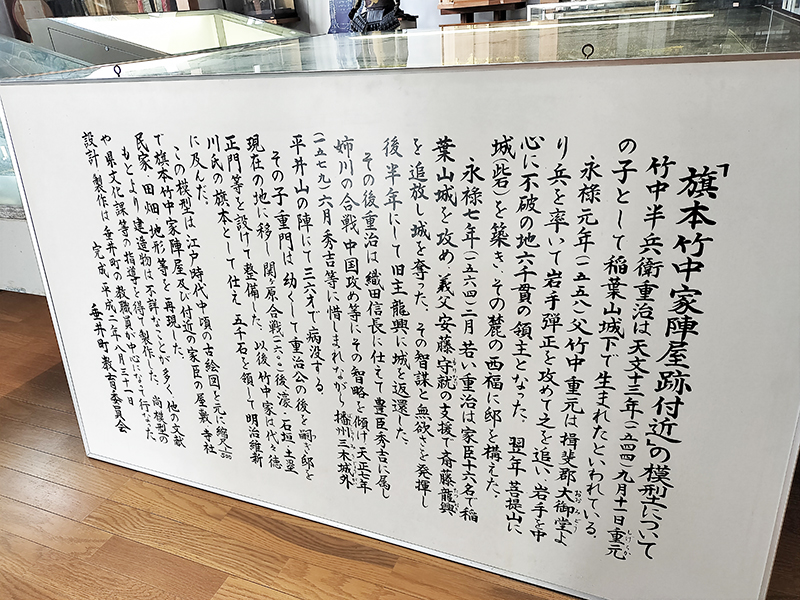 「旗本竹中家陣屋跡付近」の模型について
竹中半兵衛重治は、天文十三年(一五四四)九月十一日重元
の子として稲葉山城下で生まれたといわれている。
永禄元年(一五五八)父竹中重元は揖斐郡大御堂よ
り兵を率いて岩手弾正を攻めて之を追い、岩手を中
心に不破の地六千貫の領主となった。翌年菩提山に
城(砦)を築き、その麓の西福に邸を構えた。
永禄七年(一五六四)二月若い重治は家臣十六名で稲
葉山城を攻め、義父安藤守就の支援で斎藤龍興
を追放し城を奪った。その智謀と無欲さを発揮し
後半年にして旧主龍興に城を返還した。
その後重治は織田信長に仕えて豊臣秀吉に属し
姉川の合戦、中国攻め等にその智略を傾け天正七年
(一五七九)六月秀吉等に惜しまれながら播州三木城外
平井山の陣にて三六才で病没する。
その子重門は幼くして重治公の後を嗣ぎ邸を
現在の地に移し関ヶ原合戦(一六〇〇)後、濠・石垣・土塁
正門等を設けて整備した。以後竹中家は代々徳
川氏の旗本として仕え五千石を領して明治維新
に及んだ。
この模型は江戸時代中頃の古絵図を元に縮尺
で旗本竹中家陣屋及び付近の家臣の屋敷、寺社
民家、田畑、地形等を再現した。
もとより建造物は不詳なことが多く、他の文献
や県文化課等の指導を得て製作した。尚模型の
設計、製作は垂井町の教職員が中心になって行なった
完成 平成二年八月三十一日
垂井町教育委員会